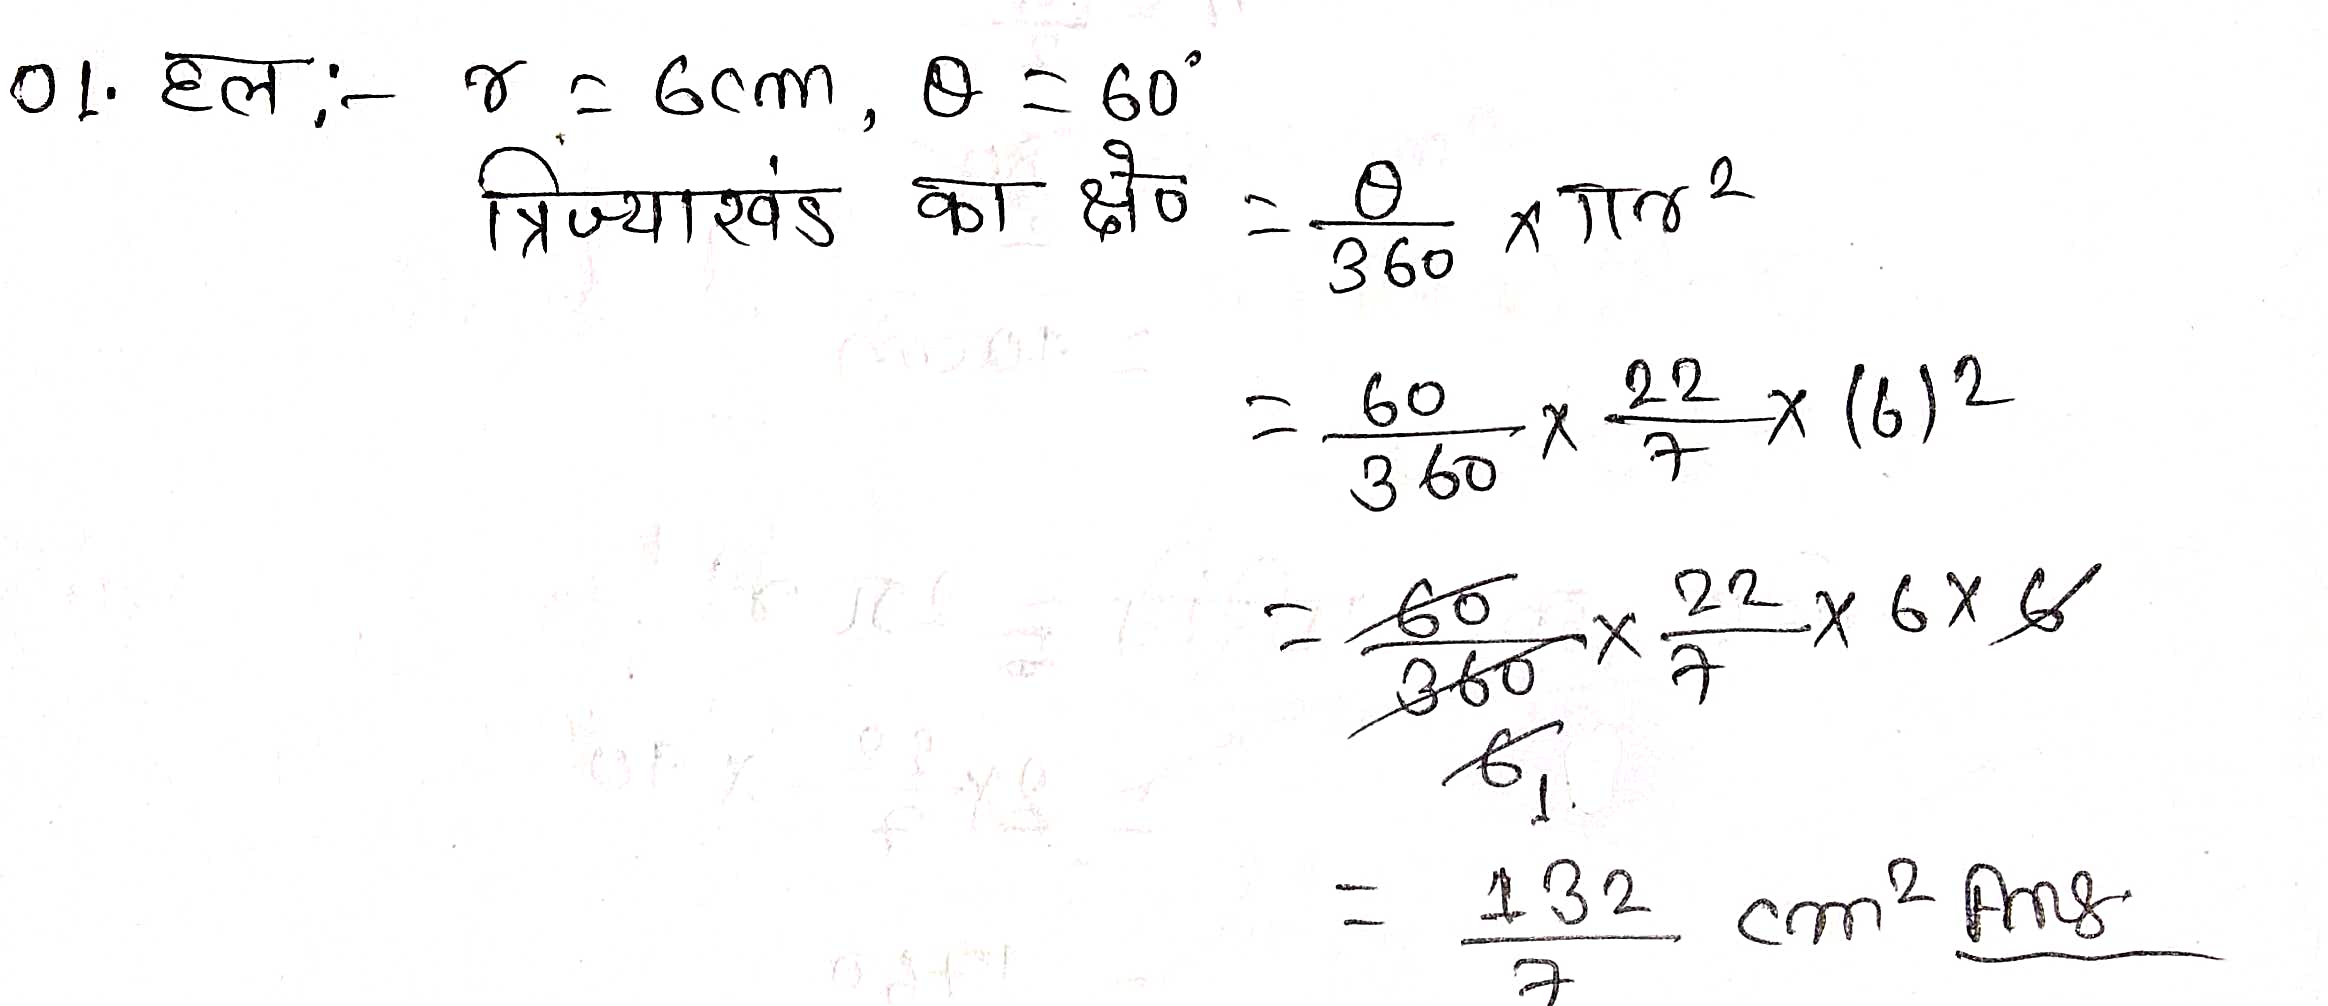 01. हल :- r = 6cm, θ = 60°
त्रिज्याखंड का क्षे० = θ/360 × πr²
= 60/360 × 22/7 × (6)²
= 60/360 × 22/7 × 6 × 6
6 1
= 132/7 cm² Ans